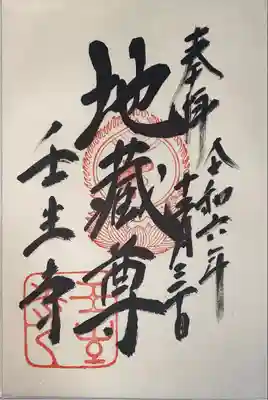 奉拝
令和六年
月三十日
地藏尊
壬生寺